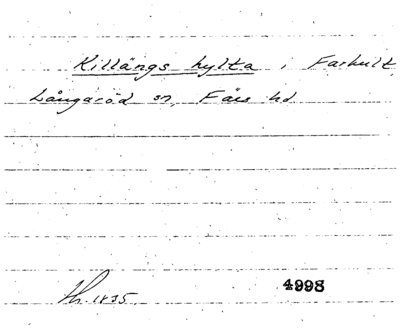 Killängs hylta i Farhult,
Långaröd sn, Färs hd
Th. 1835 4998